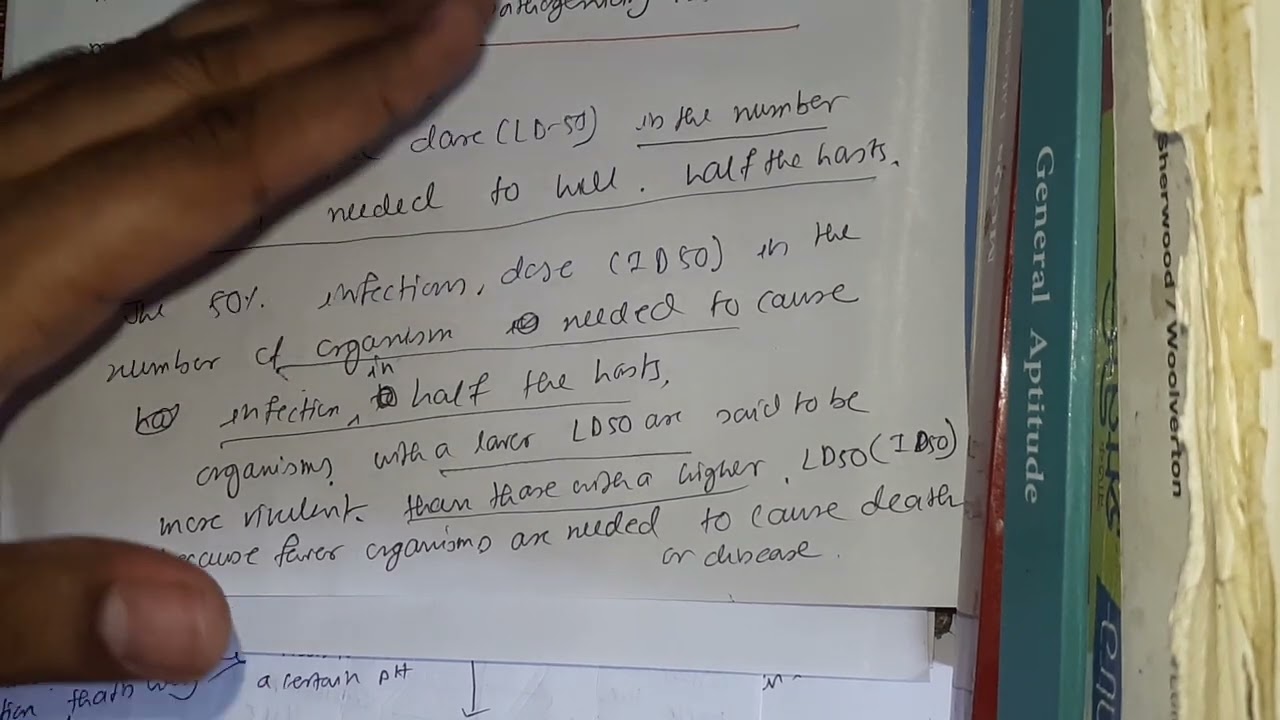 dose (LD-50) is the number
needed to kill. half the hosts.
The 50% infections, dose (ID50) is the
number of organism needed to cause
infection, in half the hosts,
organisms, with a lower LD50 are said to be
more virulent than those with a higher. LD50 (ID50)
because fewer organisms are needed to cause death
or disease.
a certain pH
General Aptitude
Sherwood / Woolverton